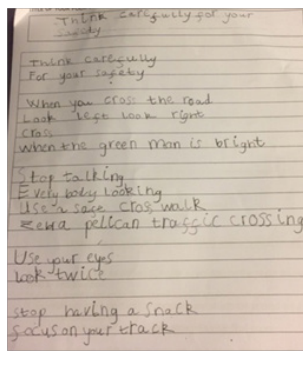 Think carefully for your
safety
Think carefully
For your safety
When you cross the road
Look left look right
cross
when the green man is bright
Stop talking
Every body looking
Use a safe cross walk
Zebra pelican traffic crossing
Use your eyes
look twice
stop having a snack
focus on your track